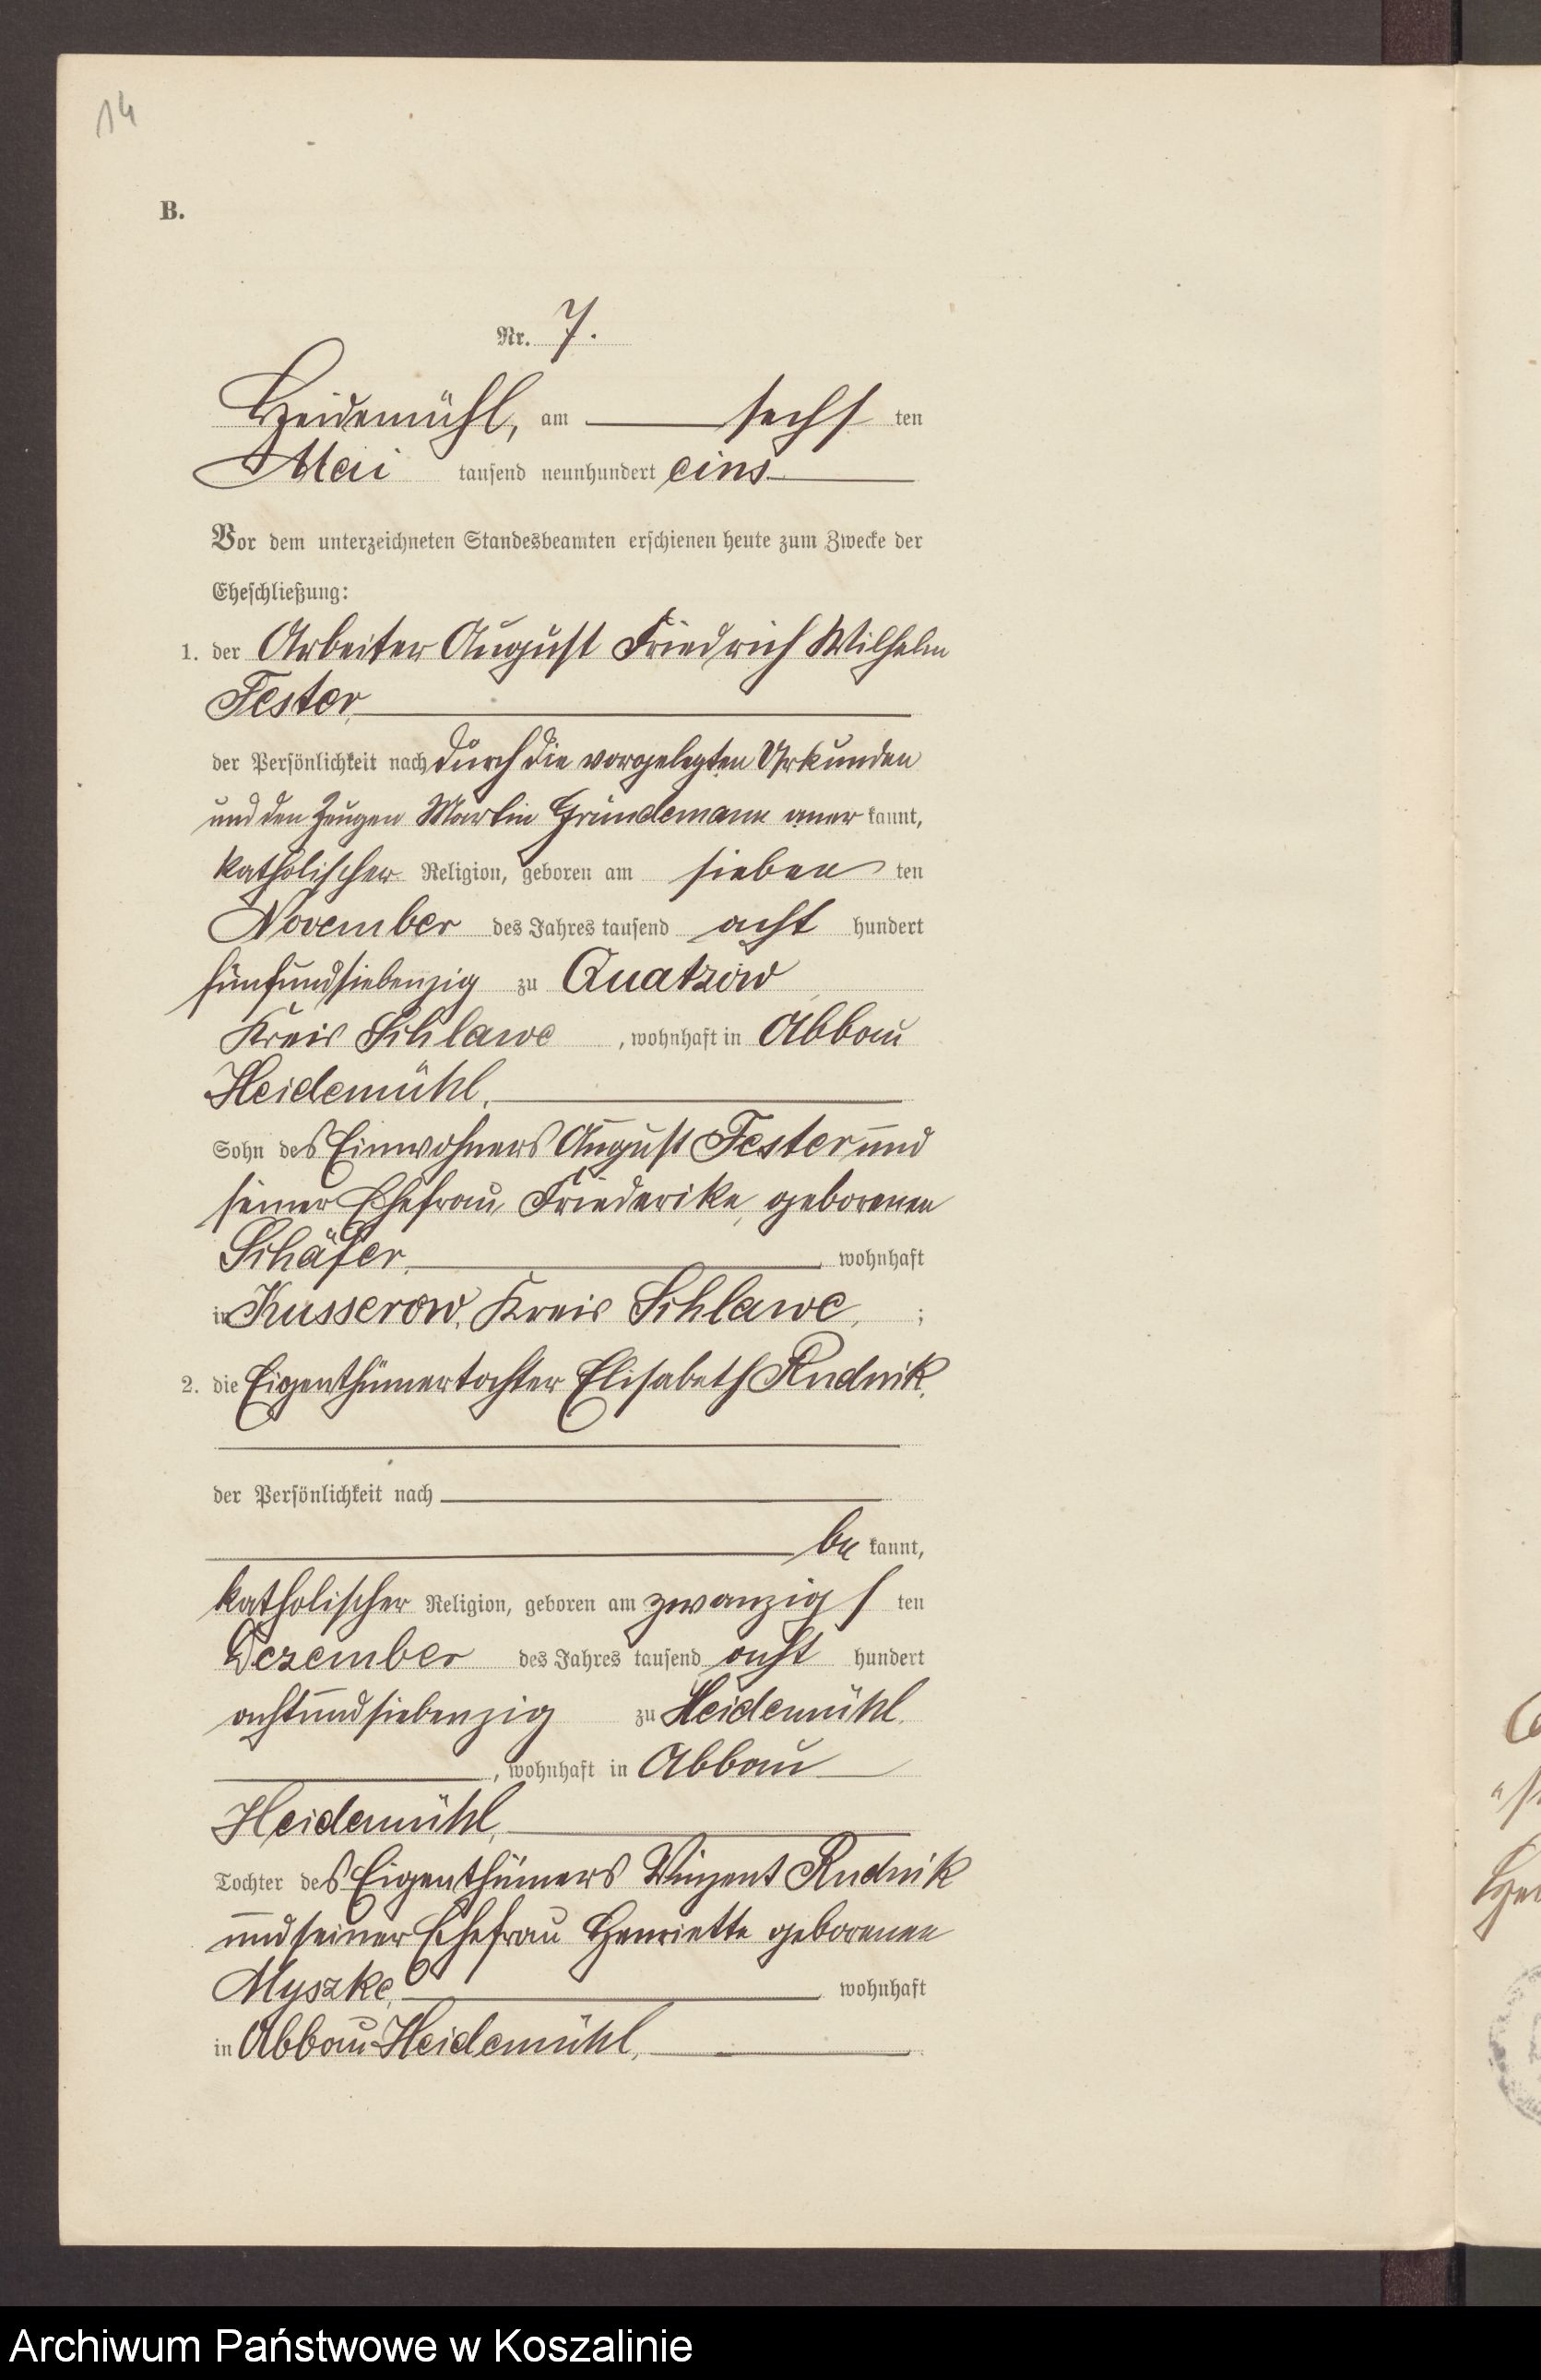 14
B.
Nr. 7.
Heidemühl, am sechs ten
Mai tausend neunhundert eins
Vor dem unterzeichneten Standesbeamten erschienen heute zum Zwecke der
Eheschließung:
1. der Arbeiter August Friedrich Wilhelm
Fester,
der Persönlichkeit nach durch die vorgelegten Urkunden
und den Zeugen Martin Gründemann aner kannt,
katholischer Religion, geboren am sieben ten
November des Jahres tausend acht hundert
fünfundsiebenzig zu Quatzow
Kreis Schlawe, wohnhaft in Abbau
Heidemühl,
Sohn des Einwohners August Fester und
seiner Ehefrau Friederike, geborenen
Schäfer, wohnhaft
in Kusserow, Kreis Schlawe, ;
2. die Eigenthümertochter Elisabeth Rudnik,
der Persönlichkeit nach
be kannt,
katholischer Religion, geboren am zwanzigs ten
Dezember des Jahres tausend acht hundert
achtundsiebenzig zu Heidemühl,
, wohnhaft in Abbau
Heidemühl,
Tochter des Eigenthümers Vinzent Rudnik
und seiner Ehefrau Henriette geborenen
Myszke, wohnhaft
in Abbau Heidemühl,
Archiwum Państwowe w Koszalinie